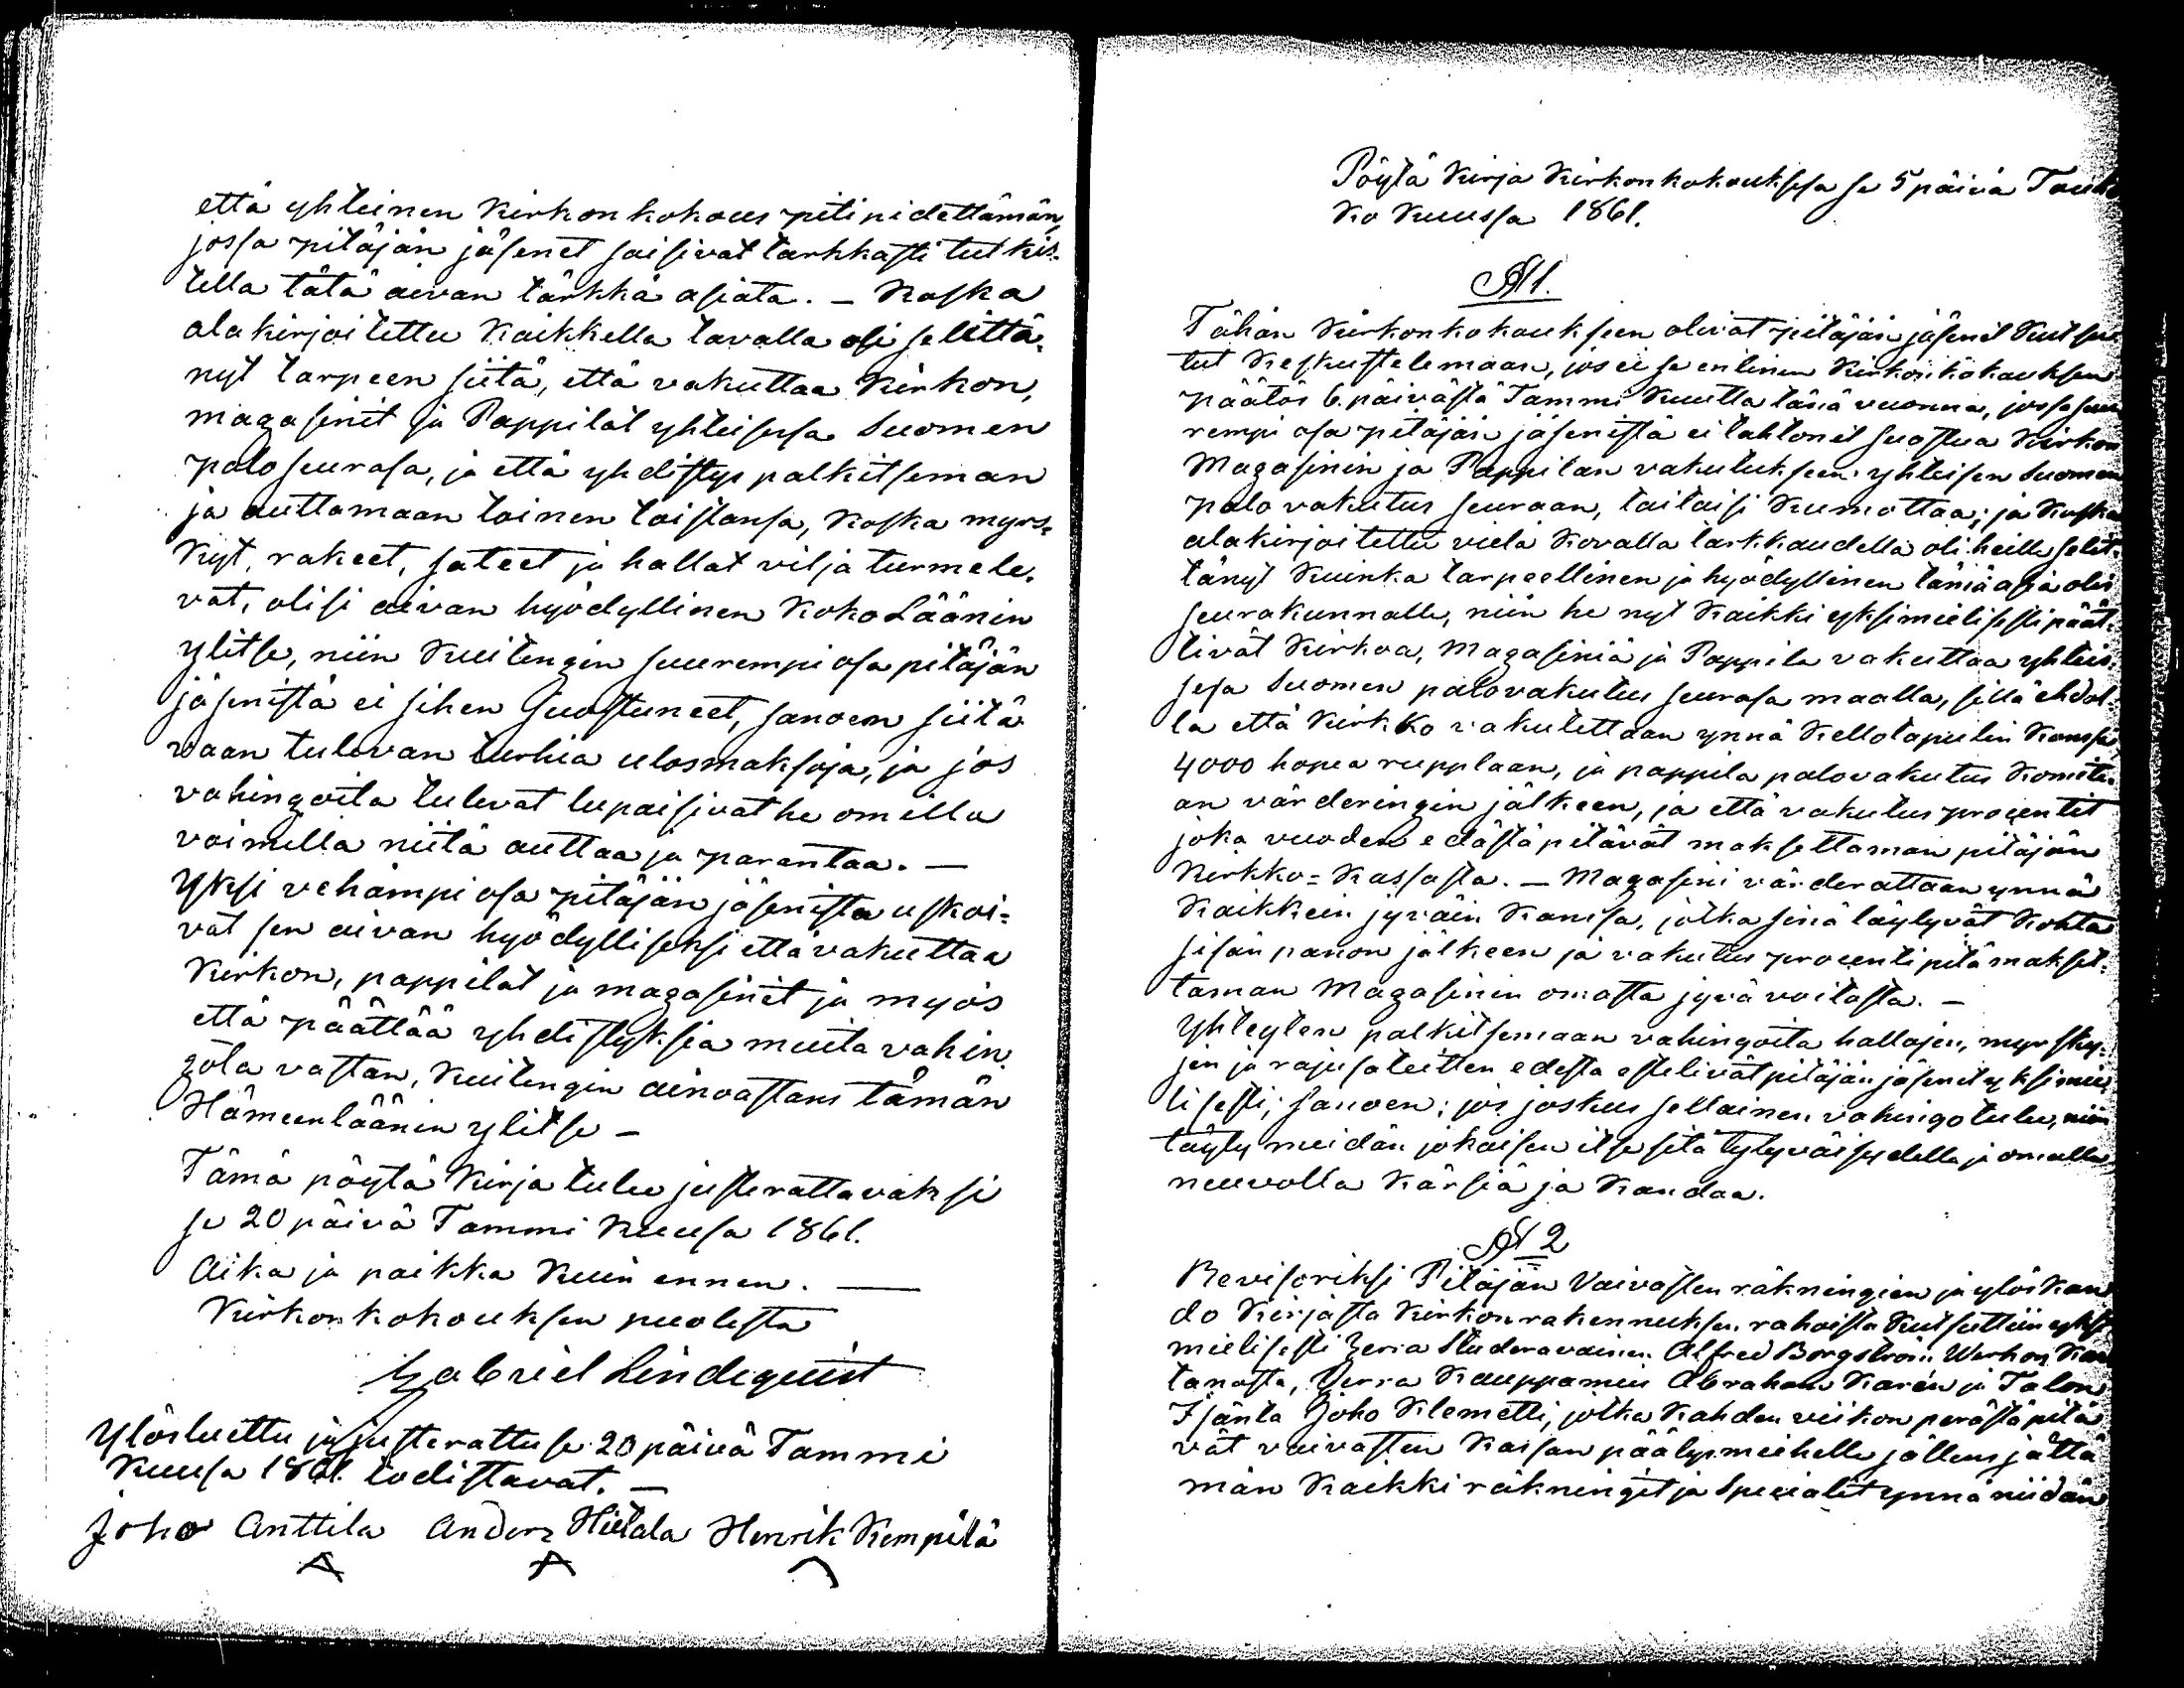 että yhteinen Kirkon kokous piti pidettämän,
jossa pitäjän jäsenet saisivat tarkkasti tutkis-
tella tätä aivan tärkkä asiata. – Koska
alakirjoitettu Kaikkella tavalla oli selittä-
nyt tarpeen siitä, että vakuttaa Kirkon,
magasinit ja Pappilat yhteisesä Suomen
paloseurasa, ja että yhdistys palkitseman
ja auttamaan toinen toistansa, Koska myrs-
Kyt, rakeet, sateet ja hallat vilja turmele-
vat, olisi aivan hyödyllinen Koko Läänin
ylitse, niin Kuitengin suurempi osa pitäjän
jäsenistä ei siihen suostuneet, sanoen siitä
vaan tulevan turhia ulosmaksoja, ja jos
vahingoita tulevat lupaisivat he omilla
voimilla niitä auttaa ja parantaa. –
Yksi vehämpi osa pitäjän jäsenistä uskoi=
vat sen aivan hyödylliseksi että vakuttaa
Kirkon, pappilat ja magasinit ja myös
että päättää yhdistyksia muita vahin
góta vastan, Kuitengin ainoastans tämän
Hämeenläänin ylitse –
Tämä pöytä Kirja tulee justerattavaksi
se 20 päivä Tammi Kuusa 1861.
Aika ja paikka Kuin ennen. –
Kirkon kokouksen puolesta
Gabriel Lindequist
Ylösluettu ja justerattu se 20 päivä Tammi
Kuusa 1861. todistavat. –
Joho Anttila Anders Hietala Henrik Kempilä
Pöytä Kirja Kirkonkokouksesa se 5 päivä Touko
Ko Kuussa 1861.
§ 1.
Tähän Kirkonkokoukseen olivat pitäjän jäsenet Kutsu-
tut Keskustelemaan, jos ei se entinen Kirkonkokouksen
päätös 6. päivästä Tammi Kuutta tänä vuonna, jossa suu
rempi osa pitäjän jäsenistä ei tahtonet suostua Kirkon
Magasinin ja Pappilan vakutukseen yhteisen Suomen
palo vakutus seuraan, taitaisi Kumottaa; ja Koska
alakirjoitettu vielä Kovalla tarkkaudella oli heille selit-
tänyt Kuinka tarpeellinen ja hyödyllinen tämä asia olis
seurakunnalle, niin he nyt Kaikki yksimielisesti päät-
tivät Kirkoa, Magasiniä ja Pappila vakuttaa yhteis-
sesa Suomen palovakutus seurasa maalla, sillä ehdol-
la että Kirkko vakutettaan ynnä Kellotapulin Kanssa
4000 hopea rupplaan, ja pappila palovakutus Komite-
an värderingin jälkeen, ja että vakutus procentit
joka vuoden edästä pitävät maksettaman pitäjän
Kirkko=Kassasta. – Magasini värderattaan ynnä
Kaikkein jyväin Kansa, jotka sinä läytyvät Kohta
sisän panon jälkeen ja vakutus procenti pitä makset-
taman Magasinin omasta jyvä voitosta. –
Yhteyten palkitsemaan vahingoita hallajen, myrsky-
jen ja rajusateitten edestä estelivät pitäjän jäsenet yksimie-
lisesti, sanoen: jos joskus sellainen vahingo tulee, niin
täyty meidän jokaisen itse sitä tytyväisydellä ja omalla
neuvolla Kärsiä ja Kandaa.
§ 2
Revisoriksi Pitäjän Vaivasten räkningien ja ylöskan
do Kirjasta Kirkon rakennuksen rahoista Kutsuttiin yksi
mielisesti Herra Studeravainen Alfred Borgström Warhon Kar
tanosta, Herra Kauppamies Abraham Karén ja Talon
Isäntä Joho Klemetti, jotka Kahden viikon perästä pitä
vät vaivasten Kassan päälysmiehelle jällens jättä
män Kaikki räkningit ja Specialit ynnä niidän